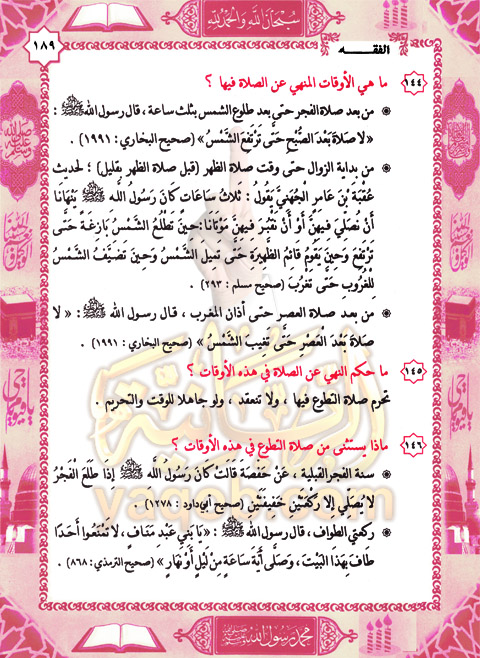 سبحان الله والحمد لله
١٨٩
الفقـــه
١٤٤ ما هي الأوقات المنهي عن الصلاة فيها ؟
من بعد صلاة الفجر حتى بعد طلوع الشمس بثلث ساعة ، قال رسول الله ﷺ :
« لا صَلاةَ بَعْدَ الصُّبْحِ حَتَّى تَرْتَفِعَ الشَّمْسُ » (صحيح البخاري : ١٩٩١) .
من بداية الزوال حتى وقت صلاة الظهر (قبل صلاة الظهر بقليل) ؛ لحديث
عُقْبَةَ بْنَ عَامِرٍ الْجُهَنِيَّ يَقُولُ : ثَلاثُ سَاعَاتٍ كَانَ رَسُولُ اللَّهِ ﷺ يَنْهَانَا
أَنْ نُصَلِّيَ فِيهِنَّ أَوْ أَنْ نَقْبُرَ فِيهِنَّ مَوْتَانَا : حِينَ تَطْلُعُ الشَّمْسُ بَازِغَةً حَتَّى
تَرْتَفِعَ وَحِينَ يَقُومُ قَائِمُ الظَّهِيرَةِ حَتَّى تَمِيلَ الشَّمْسُ وَحِينَ تَضَيَّفُ الشَّمْسُ
لِلْغُرُوبِ حَتَّى تَغْرُبَ (صحيح مسلم : ٢٩٣) .
من بعد صلاة العصر حتى أذان المغرب ، قال رسول الله ﷺ : « لا
صَلاةَ بَعْدَ الْعَصْرِ حَتَّى تَغِيبَ الشَّمْسُ » (صحيح البخاري : ١٩٩١) .
١٤٥ ما حكم النهي عن الصلاة في هذه الأوقات ؟
تحرم صلاة التطوع فيها ، ولا تنعقد ، ولو جاهلا للوقت والتحريم .
١٤٦ ماذا يستثنى من صلاة التطوع في هذه الأوقات ؟
سنة الفجر القبلية ، عَنْ حَفْصَةَ قَالَتْ كَانَ رَسُولُ اللَّهِ ﷺ إِذَا طَلَعَ الْفَجْرُ
لا يُصَلِّي إِلا رَكْعَتَيْنِ خَفِيفَتَيْنِ (صحيح أبي داود : ١٢٧٨) .
ركعتي الطواف ، قال رسول الله ﷺ : « يَا بَنِي عَبْدِ مَنَافٍ ، لَا تَمْنَعُوا أَحَدًا
طَافَ بِهَذَا الْبَيْتِ ، وَصَلَّى أَيَّةَ سَاعَةٍ مِنْ لَيْلٍ أَوْ نَهَارٍ » (صحيح الترمذي : ٨٦٨) .
محمد رسول الله ﷺ